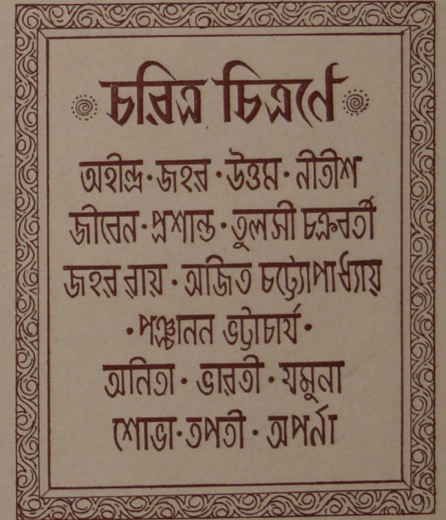 চরিত্র চিত্রণে
অহীন্দ্র · জহর · উত্তম · নীতীশ
জীবেন · প্রশান্ত · তুলসী চক্রবর্তী
জহর রায় · অজিত চট্টোপাধ্যায়
· পঞ্চানন ভট্টাচার্য ·
অনিতা · ভারতী · যমুনা
শোভা · তপতী · অপর্না